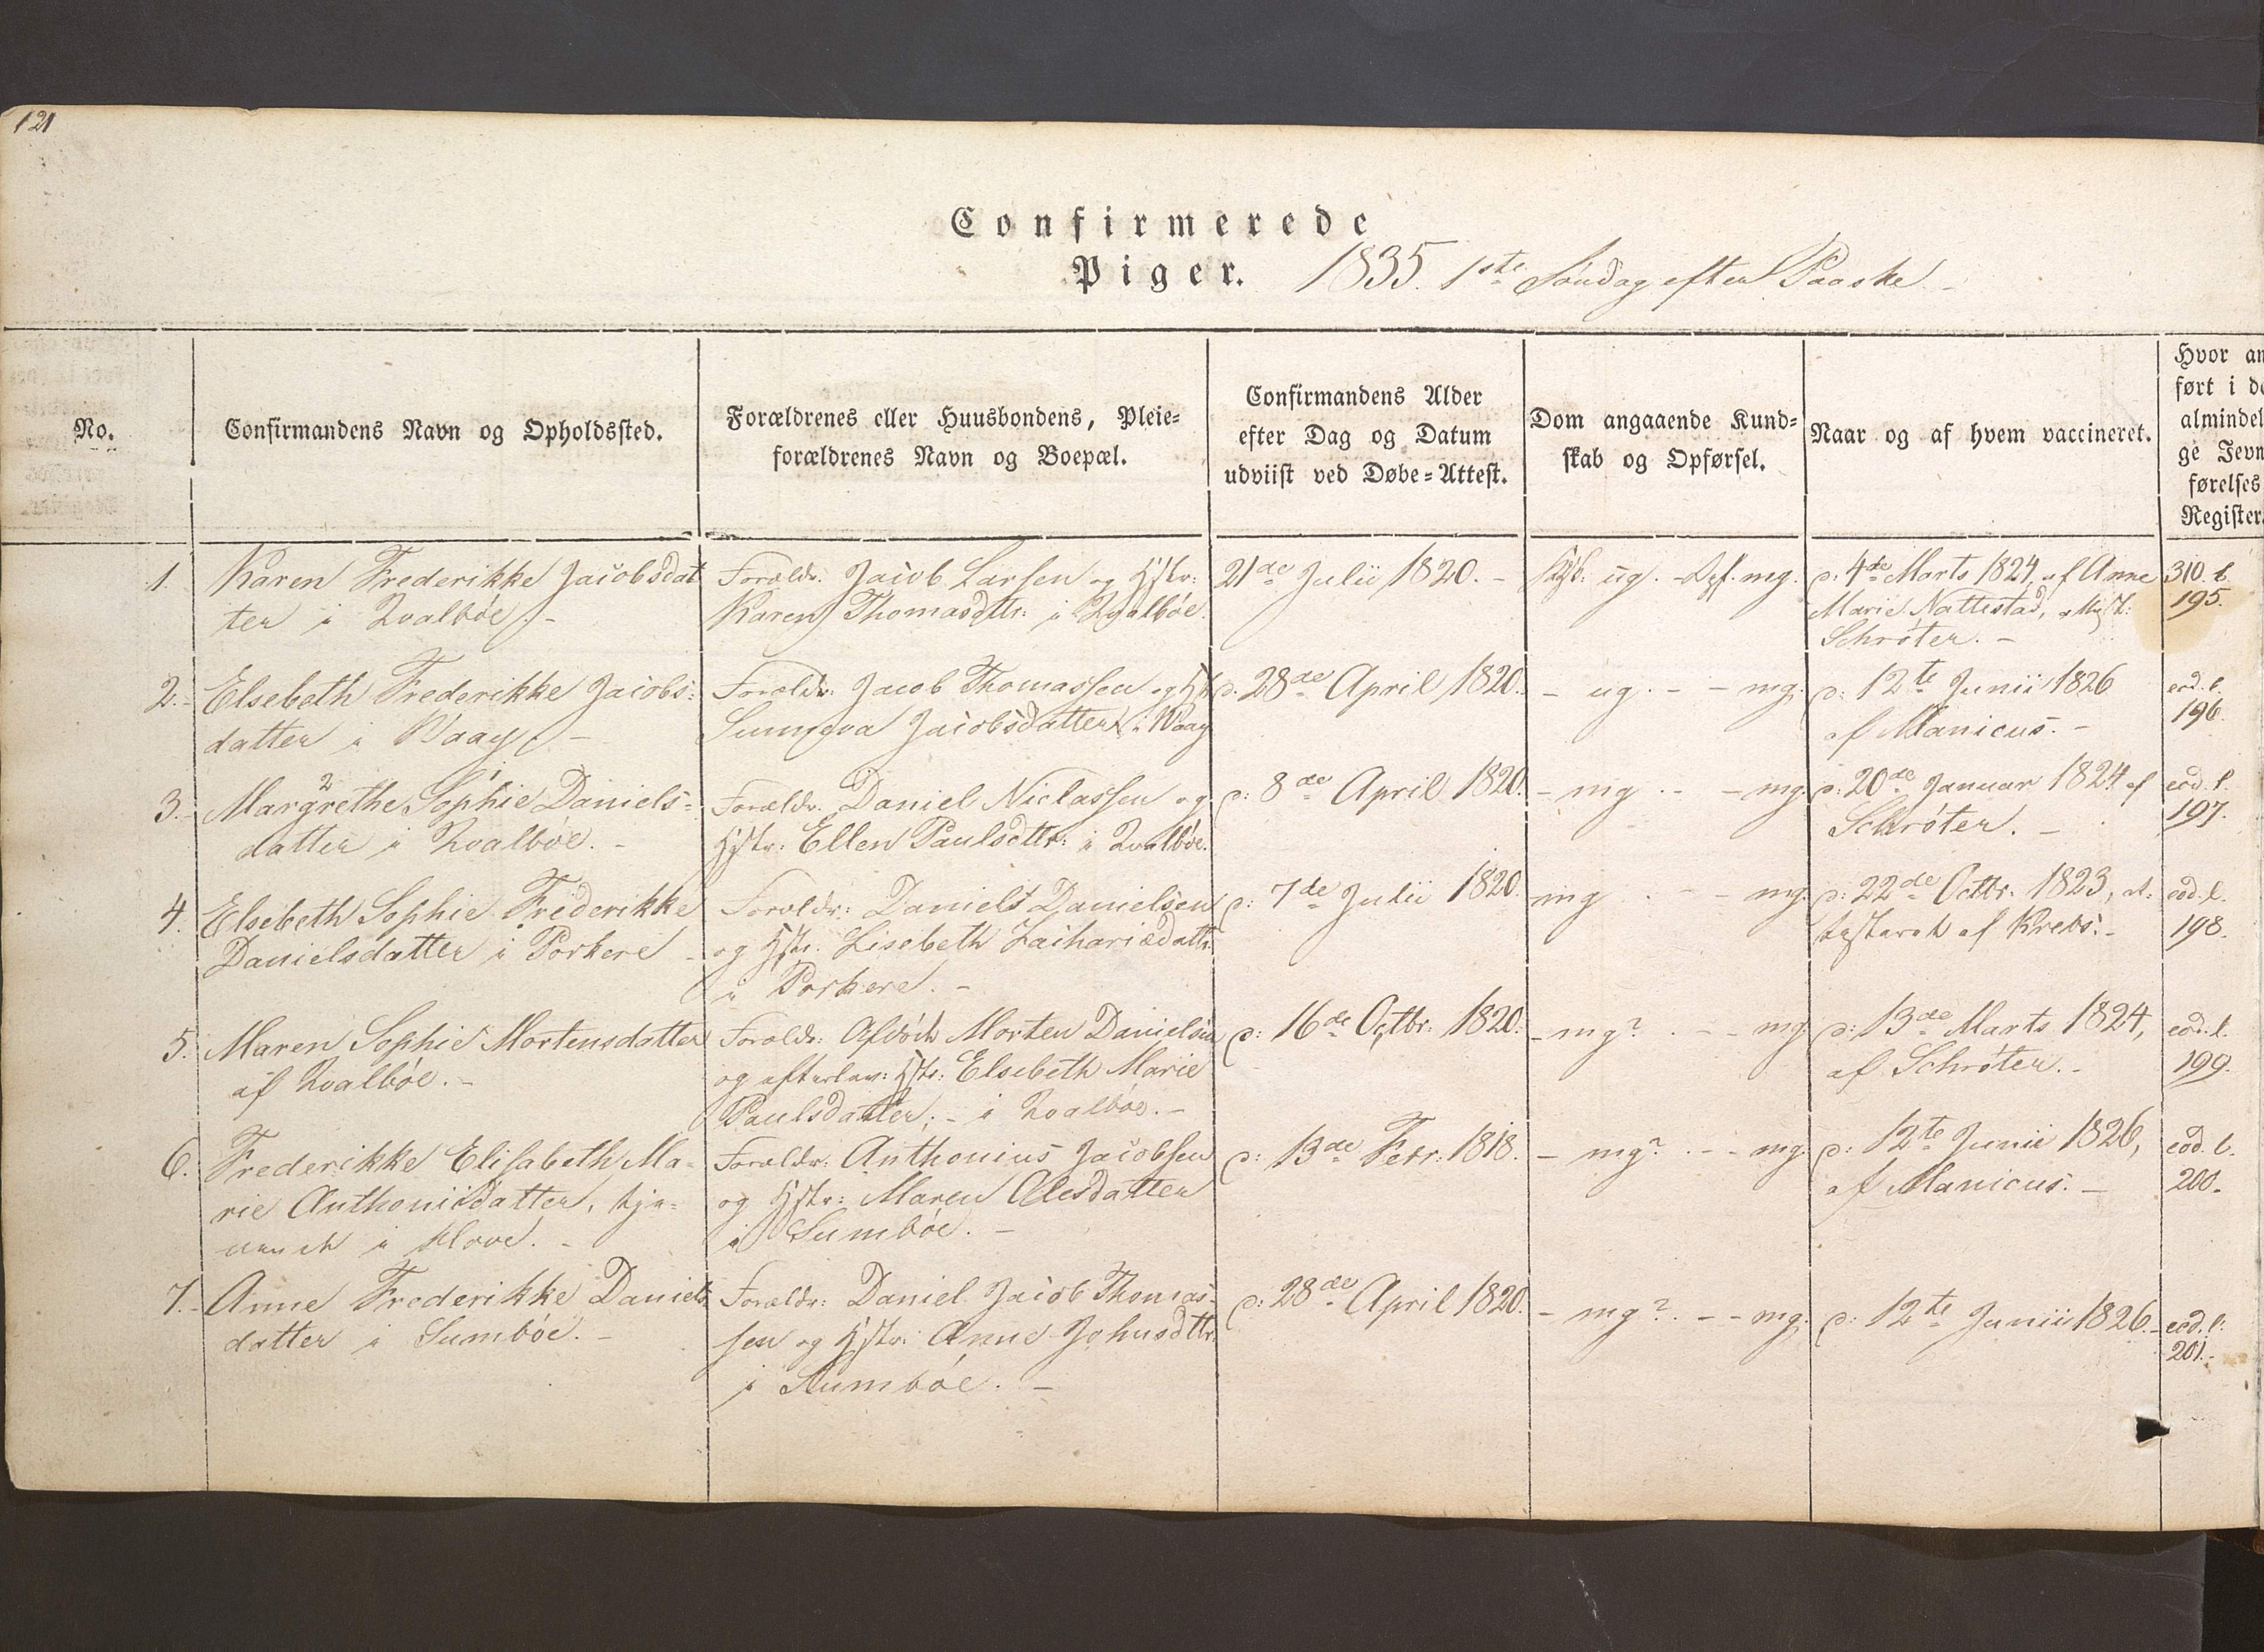 121
Confirmerede
Piger. 1835. 1ste Søndag efter Paaske
No.
Confirmandens Navn og Opholdssted.
Forældrenes eller Huusbondens, Pleie=
forældrenes Navn og Boepæl.
Confirmandens Alder
efter Dag og Datum
udviist ved Døbe=Attest.
Dom angaaende Kund=
skab og Opførsel.
Naar og af hvem vaccineret.
Hvor an
ført i de
almindel
ge Jevn
førelses
Register.
1. Karen Frederikke Jacobsdat
ter i Qvalböe. -
Foræld: Jacob Larsen og Hstr:
Karen Thomasdttr: i Qvalböe.
21de Julii 1820. -
ug. - mg.
d: 4de Marts 1824, af Anne
Marie Nattestad,
Schröter. -
310. l.
195.
2. Elsebeth Frederikke Jacobs:
datter i Waag. -
Foræld: Jacob Thomassen og Hst
Sunneva Jacobsdatter i Waag
d. 28de April 1820.
- ug. - - mg.
d: 12te Junii 1826
af Manicus. -
eod. l.
196.
3. Margrethe 2 Sophie 1 Daniels=
datter i Qvalböe. -
Forældr. Daniel Niclassen og
Hstr: Ellen Paulsdttr: i Qvalböe.
d: 8de April 1820.
- mg. - - mg.
d: 20de Januar 1824 af
Schröter. -
eod. l.
197.
4. Elsebeth Sophie Friderikke
Danielsdatter i Porkere -
Foræld: Daniel Danielsen
og Hstr. Lisebeth Zachariædattr.
i Porkere. -
d: 7de Julii 1820.
mg. - - mg.
d: 22de Octbr. 1823, at:
testeret af Krebs. -
eod. l.
198.
5. Maren Sophie Mortensdatter
af Qvalböe. -
Foræld: Afdöde Morten Danielsen
og efterlev: Hstr: Elsebeth Marie
Paulsdatter, - i Qvalböe. -
d: 16de Octbr: 1820.
- mg? - - mg.
d: 13de Marts 1824,
af Schröter. -
eod. l.
199.
6. Frederikke Elisabeth Ma=
rie Anthonisdatter, tje=
nende i Hove. -
Forældr. Anthonius Jacobsen
og Hstr: Maren Olesdatter
i Sumböe. -
d: 13de Febr: 1818.
- mg? - - mg.
d: 12te Junii 1826,
af Manicus. -
eod. l.
200.
7. Anne Frederikke Daniels
datter i Sumböe. -
Foræld: Daniel Jacob Thomas=
sen og Hstr: Anne Johnsdttr
i Sumböe. -
d: 28de April 1820.
- mg? - - mg.
d: 12te Junii 1826. -
eod. l:
201. -